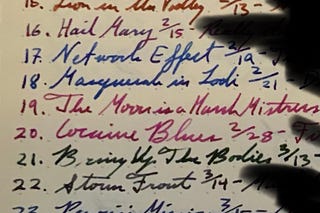 15. Lion in the Valley 2/13-
16. Hail Mary 2/15-
17. Network Effect 2/19-
18. Masquerade in Lodi 2/21-
19. The Moon is a Harsh Mistress
20. Cocaine Blues 2/28-
21. Bring Up The Bodies 3/13-
22. Storm Front 3/14-